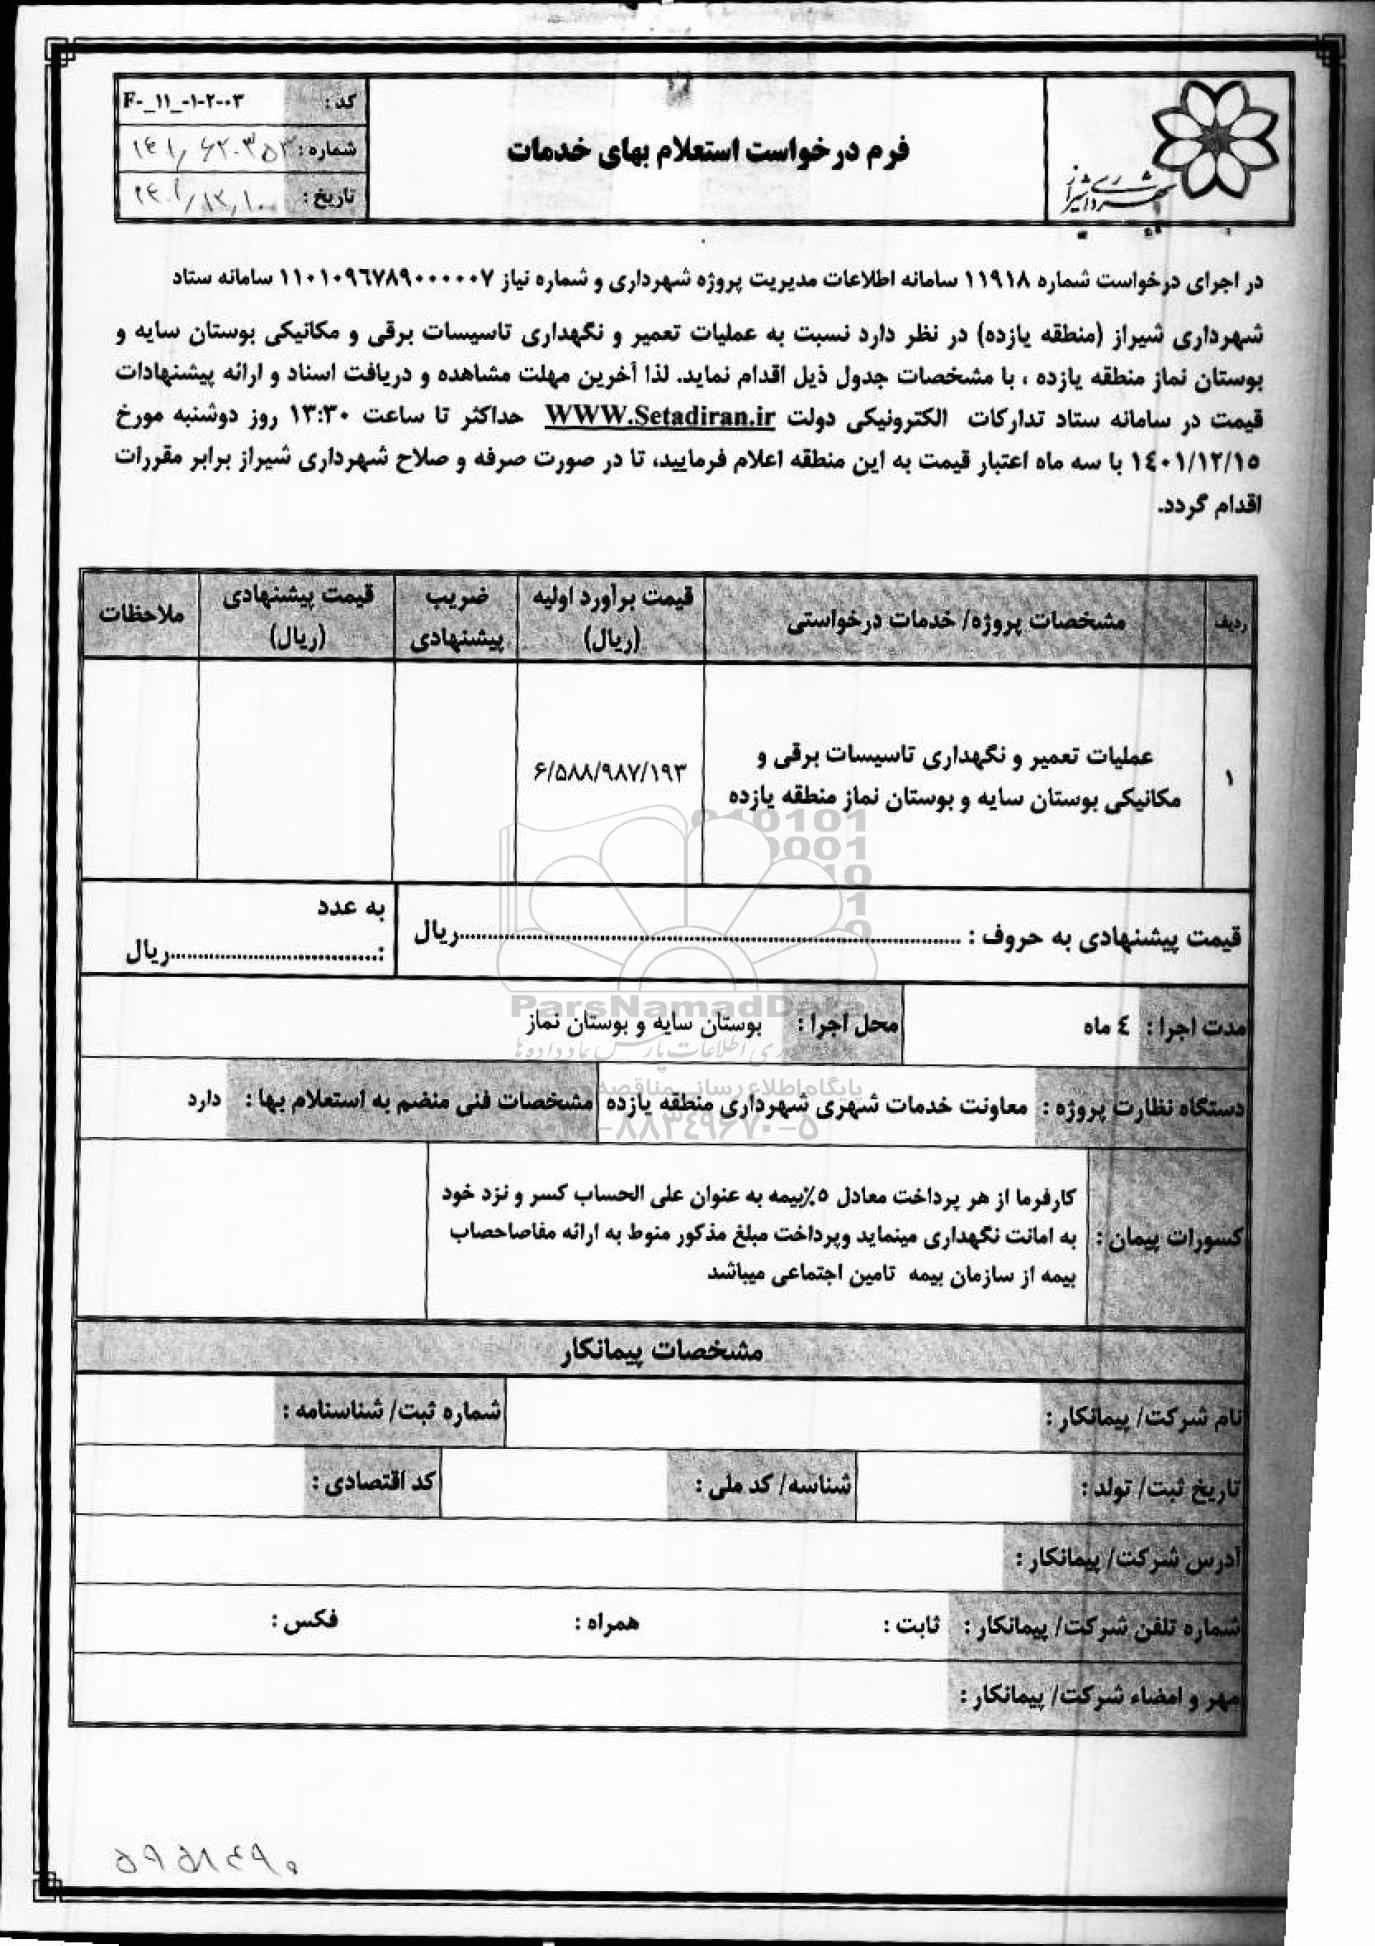 شهرداری شیراز
فرم درخواست استعلام بهای خدمات
کد : F-_۱۱_-۱-۲-۰۳
شماره :
تاریخ :
در اجرای درخواست شماره ۱۱۹۱۸ سامانه اطلاعات مدیریت پروژه شهرداری و شماره نیاز ۱۱۰۱۰۹٦۷۸۹۰۰۰۰۰۷ سامانه ستاد
شهرداری شیراز (منطقه یازده) در نظر دارد نسبت به عملیات تعمیر و نگهداری تاسیسات برقی و مکانیکی بوستان سایه و
بوستان نماز منطقه یازده ، با مشخصات جدول ذیل اقدام نماید. لذا آخرین مهلت مشاهده و دریافت اسناد و ارائه پیشنهادات
قیمت در سامانه ستاد تدارکات الکترونیکی دولت WWW.Setadiran.ir حداکثر تا ساعت ۱۳:۳۰ روز دوشنبه مورخ
۱٤۰۱/۱۲/۱٥ با سه ماه اعتبار قیمت به این منطقه اعلام فرمایید، تا در صورت صرفه و صلاح شهرداری شیراز برابر مقررات
اقدام گردد.
ردیف
مشخصات پروژه/ خدمات درخواستی
قیمت برآورد اولیه
(ریال)
ضریب
پیشنهادی
قیمت پیشنهادی
(ریال)
ملاحظات
۱
عملیات تعمیر و نگهداری تاسیسات برقی و
مکانیکی بوستان سایه و بوستان نماز منطقه یازده
۶/۵۸۸/۹۸۷/۱۹۳
قیمت پیشنهادی به حروف : ..........ریال
به عدد
:..........ریال
مدت اجرا : ٤ ماه
محل اجرا : بوستان سایه و بوستان نماز
ParsNamadData
دستگاه نظارت پروژه : معاونت خدمات شهری شهرداری منطقه یازده
مشخصات فنی منضم به استعلام بها : دارد
پایگاه اطلاع رسانی مناقصه
۸۸۳۴۹۶۷۰-۵
کسورات پیمان :
کارفرما از هر پرداخت معادل ٥٪بیمه به عنوان علی الحساب کسر و نزد خود
به امانت نگهداری مینماید وپرداخت مبلغ مذکور منوط به ارائه مفاصاحصاب
بیمه از سازمان بیمه تامین اجتماعی میباشد
مشخصات پیمانکار
نام شرکت/ پیمانکار :
شماره ثبت/ شناسنامه :
تاریخ ثبت/ تولد :
شناسه/ کد ملی :
کد اقتصادی :
آدرس شرکت/ پیمانکار :
شماره تلفن شرکت/ پیمانکار : ثابت : همراه : فکس :
مهر و امضاء شرکت/ پیمانکار :